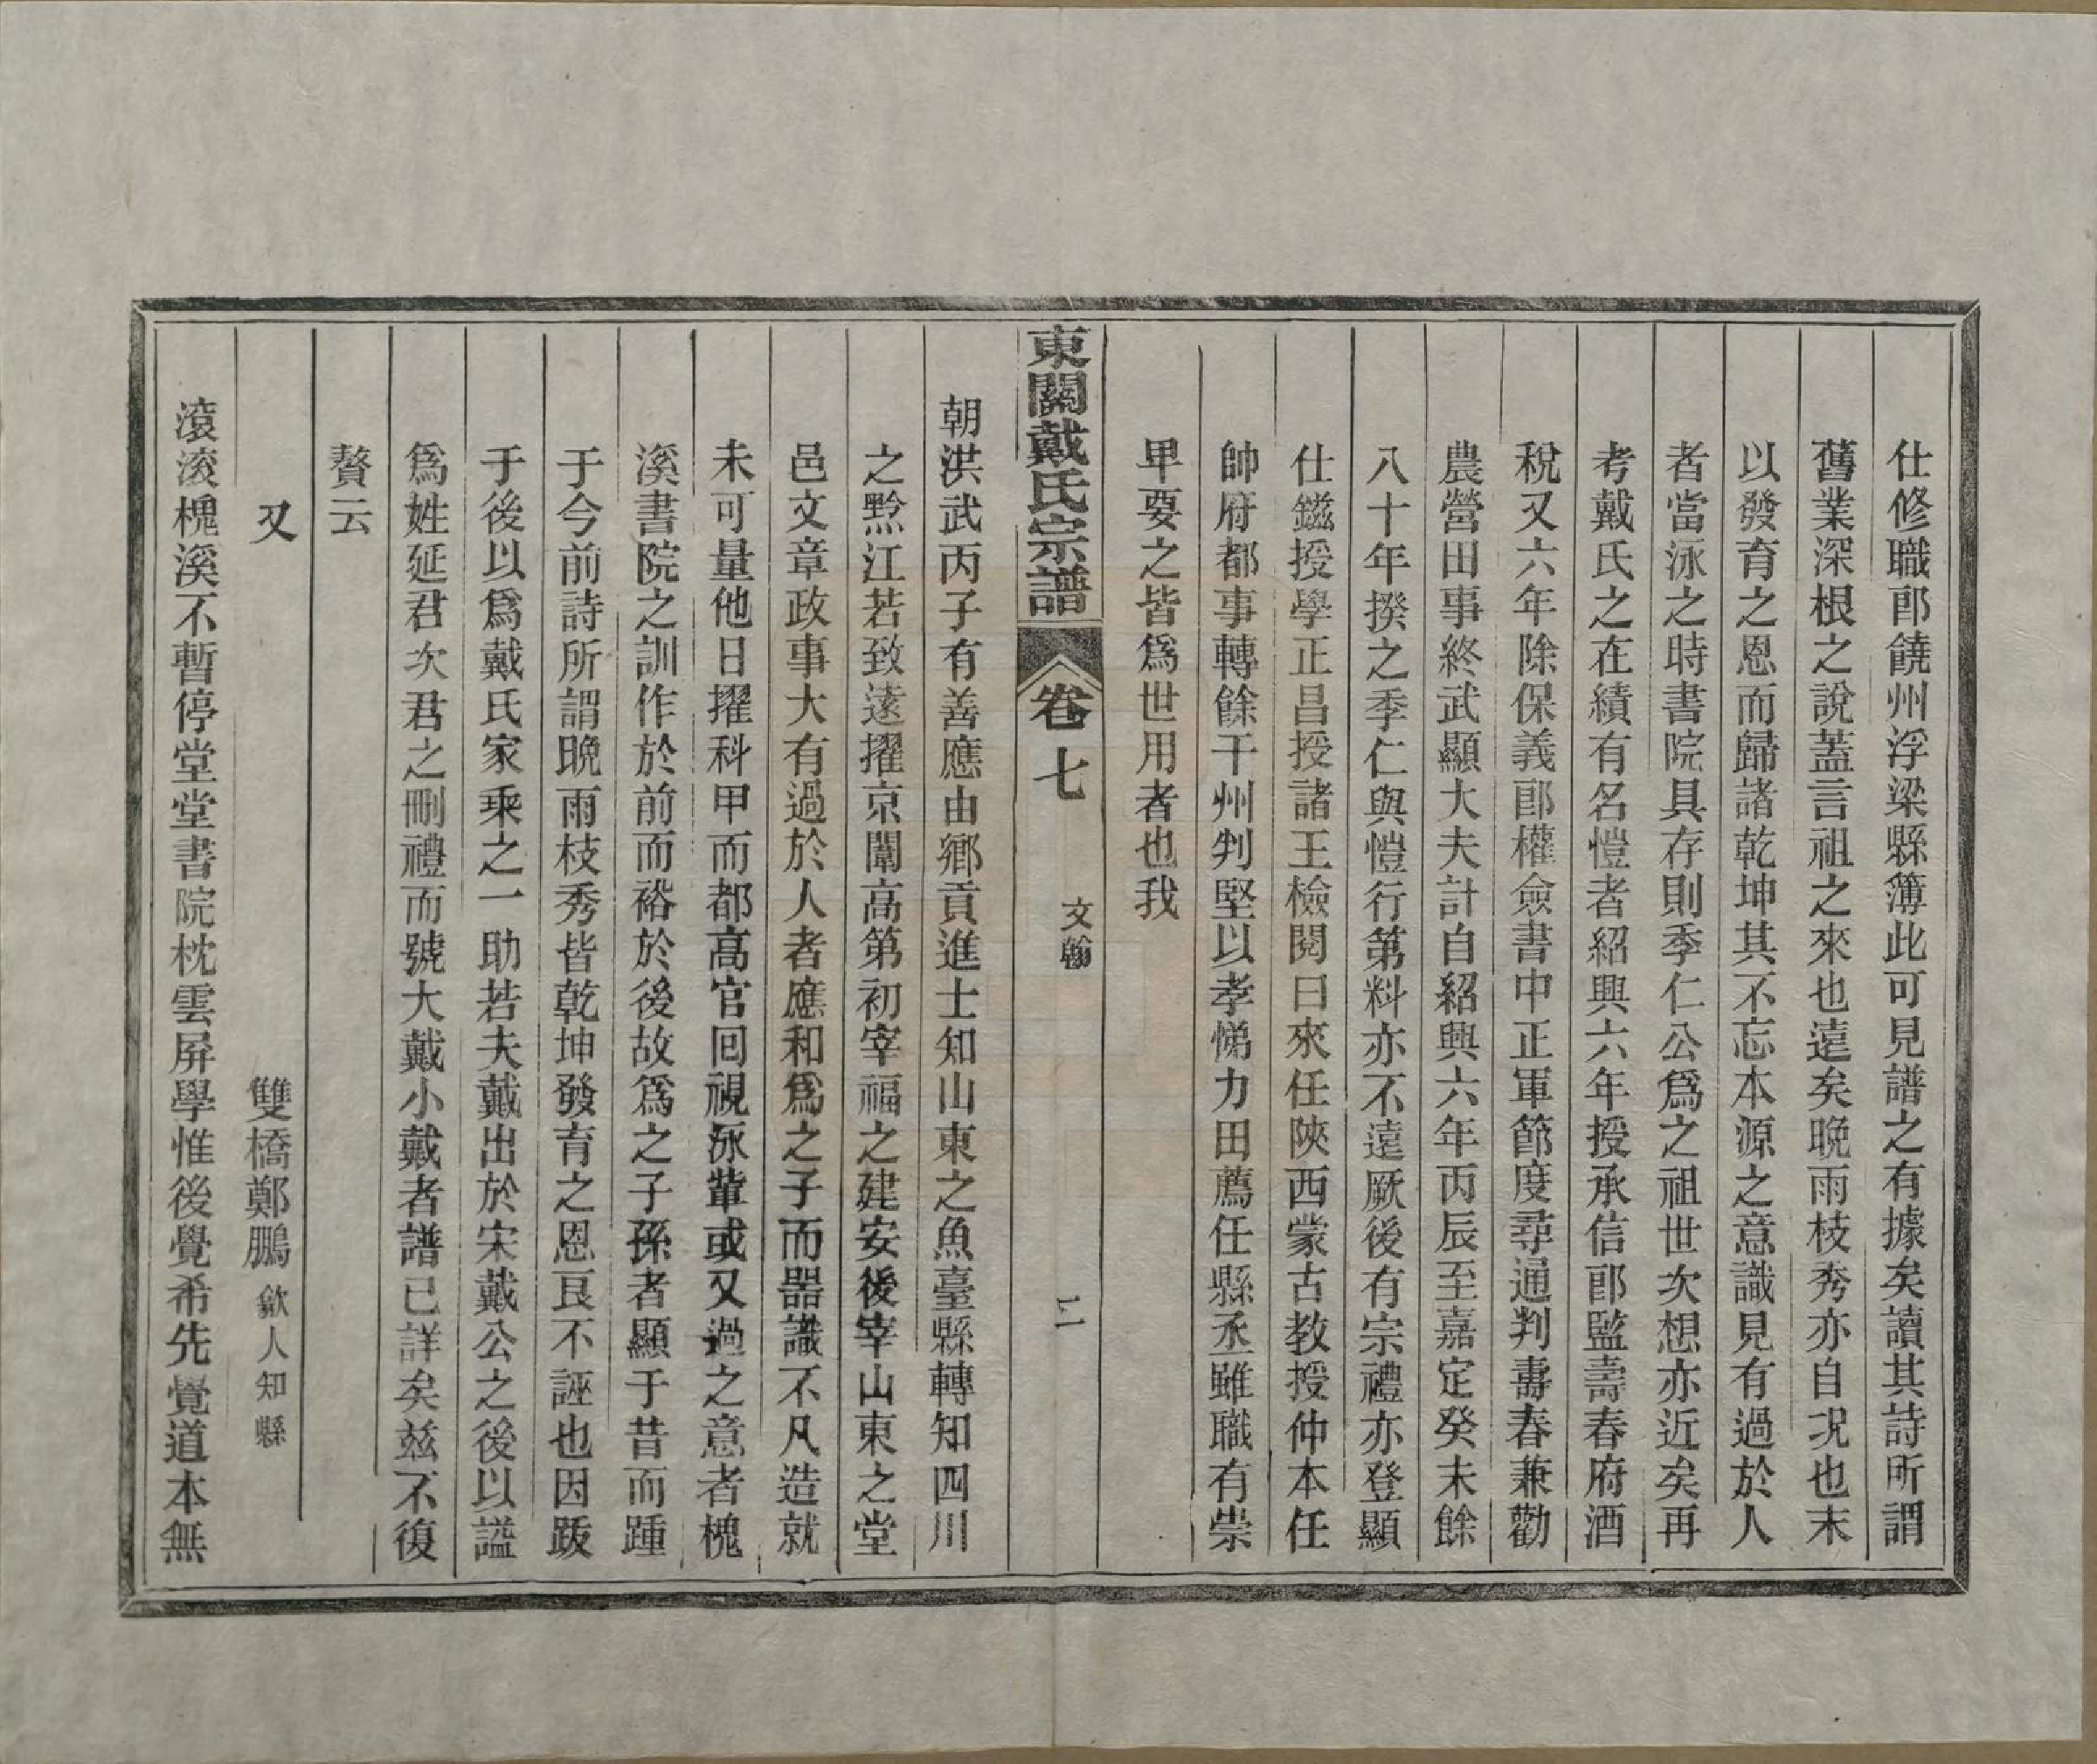 仕修職郎饒州浮梁縣簿此可見譜之有據矣讀其詩所謂
舊業深根之說蓋言祖之來也遠矣晩雨枝秀亦自况也末
以發育之恩而歸諸乾坤其不忘本源之意識見有過於人
者當泳之時書院具存則季仁公爲之祖世次想亦近矣再
考戴氏之在績有名愷者紹興六年授承信郎監壽春府酒
稅又六年除保義郎權僉書中正軍節度尋通判壽春兼勸
農營田事終武顯大夫計自紹興六年丙辰至嘉定癸未餘
八十年揆之季仁與愷行第料亦不遠厥後有宗禮亦登顯
仕鎡授學正昌授諸王檢閱曰來任陝西蒙古教授仲本任
帥府都事轉餘干州判堅以孝悌力田薦任縣丞雖職有崇
卑要之皆爲世用者也我
東關戴氏宗譜 卷七 文翰 二
朝洪武丙子有善應由鄉貢進士知山東之魚臺縣轉知四川
之黔江若致遠擢京闈高第初宰福之建安後宰山東之堂
邑文章政事大有過於人者應和爲之子而器識不凡造就
未可量他日擢科甲而都高官回視泳輩或又過之意者槐
溪書院之訓作於前而裕於後故爲之子孫者顯于昔而踵
于今前詩所謂晩雨枝秀皆乾坤發育之恩良不誣也因跋
于後以爲戴氏家乘之一助若夫戴出於宋戴公之後以謚
爲姓延君次君之刪禮而號大戴小戴者譜已詳矣茲不復
贅云
又 雙橋鄭鵬 歙人知縣
滾滾槐溪不暫停堂堂書院枕雲屏學惟後覺希先覺道本無